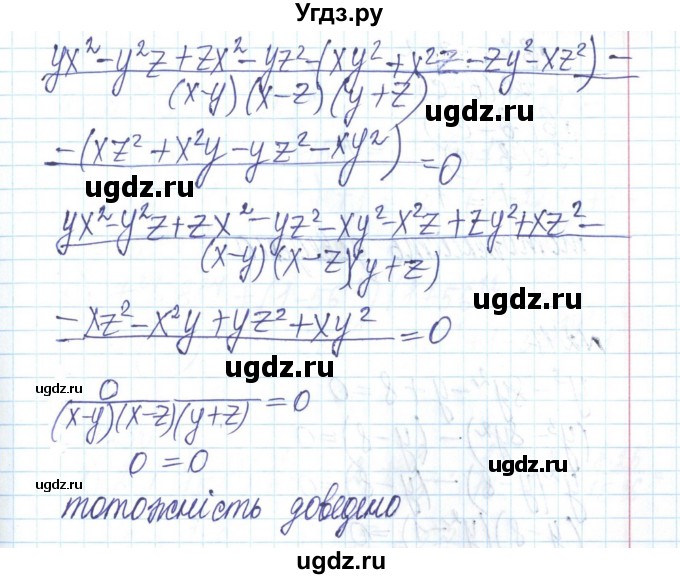 Угдз.ру
yx² - y²z + zx² - yz² - (xy² + x²z - zy² - xz²) -
(x-y)(x-z)(y+z)
ugdz.ru
- (xz² + x²y - yz² - xy²) = 0
ugdz.ru
ugdz.ru
yx² - y²z + zx² - yz² - xy² - x²z + zy² + xz² -
(x-y)(x-z)(y+z)
ugdz.ru
- xz² - x²y + yz² + xy² = 0
ugdz.ru
ugdz.ru
0
(x-y)(x-z)(y+z) = 0
0 = 0
ugdz.ru
ugdz.ru
тотожність доведено
ugdz.ru
ugdz.ru